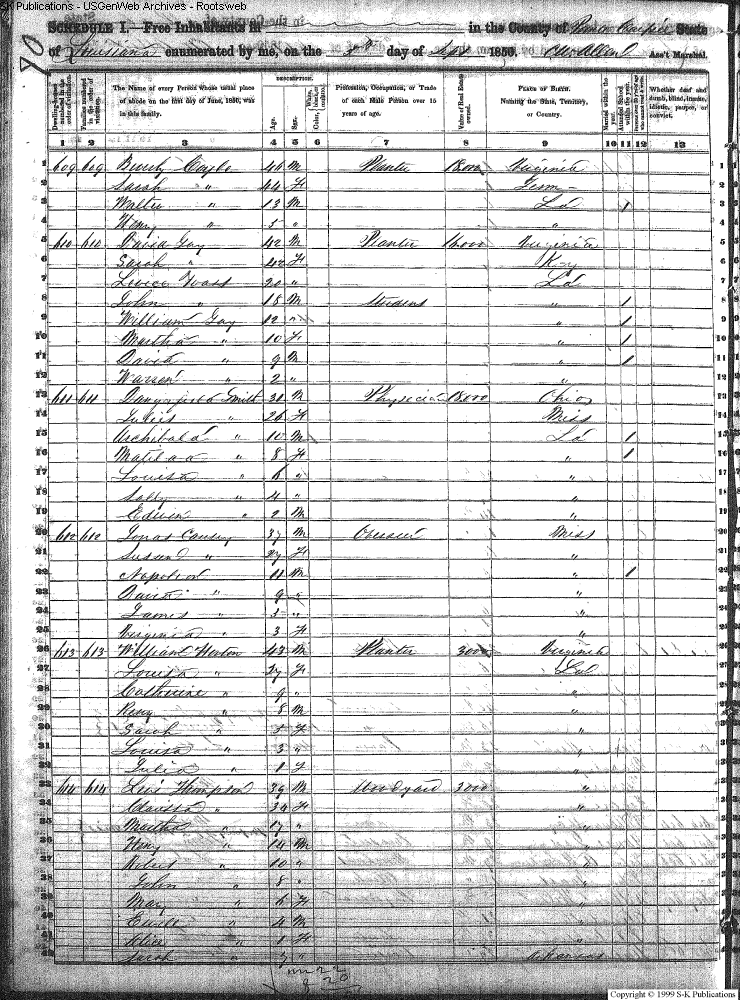 S-K Publications - USGenWeb Archives - Rootsweb
SCHEDULE I.—Free Inhabitants in in the County of State
of Louisiana enumerated by me, on the day of 1850. Ass't Marshal.
DESCRIPTION.
Dwelling-houses numbered in the order of visitation. Families numbered in the order of visitation. The Name of every Person whose usual place of abode on the first day of June, 1850, was in this family. Age. Sex. White, black, or mulatto. Color, Profession, Occupation, or Trade of each Male Person over 15 years of age. Value of Real Estate owned. PLACE OF BIRTH. Naming the State, Territory, or Country. Married within the year. Attended School within the year. Whether deaf and dumb, blind, insane, idiotic, pauper, or convict.
1 2 3 4 5 6 7 8 9 10 11 12 13
1 609 609 46 M Planter 18,000 Virginia
2 Sarah " 44 F
3 Walter " 13 M La 1
4 Henry " 5 " "
5 610 610 David Gay 42 M Planter 16,000 Virginia
6 Sarah " 42 F Ky
7 20 " La
8 John " 18 M Student " 1
9 William Gay 12 " " 1
10 Martha " 10 F " 1
11 David " 9 M " 1
12 Warren " 2 " "
13 611 611 Smith M Physician 18,000 Ohio
14 " 26 F Miss
15 Archibald " 10 M La 1
16 Matilda " 8 F " 1
17 Louisa " 6 " "
18 Sally " 4 " "
19 Edwin " 2 M "
20 612 612 Jonas Causey 37 M Overseer Miss
21 Susan " 27 F "
22 Napoleon 11 M " 1
23 David " 9 " "
24 James " 5 " "
25 Virginia " 3 F "
26 613 613 William Horton 43 M Planter 3000 Virginia
27 Louisa " 37 F La
28 Catherine " 9 " "
29 " 8 M "
30 Sarah " 5 F "
31 Louisa " 3 " "
32 Julia " 1 F "
33 614 614 Thompson 39 M Woodyard 3000 "
34 Clarissa " 34 F "
35 Martha " 17 " "
36 Henry " 14 M "
37 Robert " 10 " "
38 John " 8 " "
39 Mary " 6 F "
40 " 4 M "
41 Alice " 1 F "
42 Sarah " Arkansas
Copyright © 1999 S-K Publications